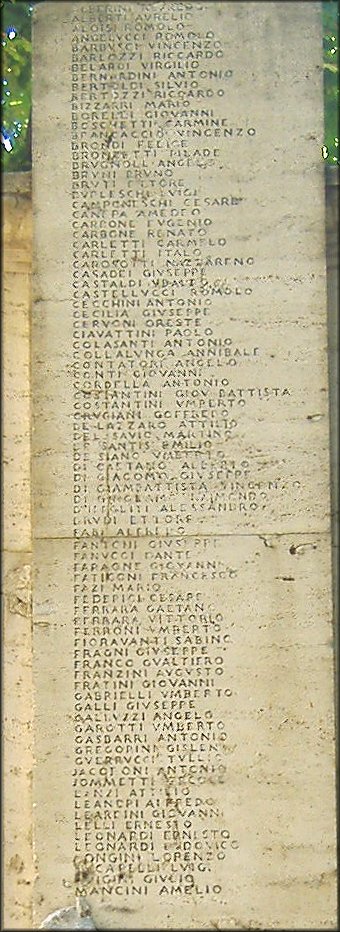 ALBERTI AVRELIO
ALOISI ROMOLO
ANGELVCCI ROMOLO
BARBVSCI VINCENZO
BARLOZZI RICCARDO
BELARDI VIRGILIO
BERNARDINI ANTONIO
BERTOLDI SILVIO
BERTOZZI RICCARDO
BIZZARRI MARIO
BORELLI GIOVANNI
BOSCHETTI CARMINE
BRANCACCIO VINCENZO
BRONDI FELICE
BRONZETTI PILADE
BRVGNOLI ANGELO
BRVNI BRVNO
BRVTI ETTORE
LVIGI
CAMPONESCHI CESARE
CANEPA AMEDEO
CARBONE EVGENIO
CARBONE RENATO
CARLETTI CARMELO
CARLETTI ITALO
CAROSOTTI NAZZARENO
CASADEI GIVSEPPE
CASTALDI VBALDO
CASTELLVCCI ROMOLO
CECCHINI ANTONIO
CECILIA GIVSEPPE
CERVONI ORESTE
CIAVATTINI PAOLO
COLASANTI ANTONIO
COLLALVNGA ANNIBALE
CONTATORE ANGELO
CONTI GIOVANNI
CORDELLA ANTONIO
COSTANTINI GIOV BATTISTA
COSTANTINI VMBERTO
CRVGIANI GOFFREDO
DE LAZZARO ATTILIO
DEL SAVIO MARTINO
DE SANTIS EMILIO
DE SIANO VMBERTO
DI GAETANO ALBERTO
DI GIACOMO GIVSEPPE
DI GIAMBATTISTA VINCENZO
RAIMONDO
ALESSANDRO
DRVDI ETTORE
FABI ALFREDO
FANTONI GIVSEPPE
FANVCCI DANTE
FARAGNE GIOVANNI
FATIGONI FRANCESCO
FAZI MARIO
FEDERICI CESARE
FERRARA GAETANO
FERRARA VITTORIO
FERRONI VMBERTO
FIORAVANTI SABINO
FRAGNI GIVSEPPE
FRANCO GVALTIERO
FRANZINI AVGVSTO
FRATINI GIOVANNI
GABRIELLI VMBERTO
GALLI GIVSEPPE
GALLVZZI ANGELO
GAROTTI VMBERTO
GASBARRI ANTONIO
GREGORINI GISLENO
GVERRVCCI TVLLIO
IACOPONI ANTONIO
IOMMETTI ERCOLE
LANZI ATTILIO
LEANDRI ALFREDO
LEARDINI GIOVANNI
LELLI ERNESTO
LEONARDI ERNESTO
LEONARDI LODOVICO
LONGINI LORENZO
LVIGI
GIVLIO
MANCINI AMELIO